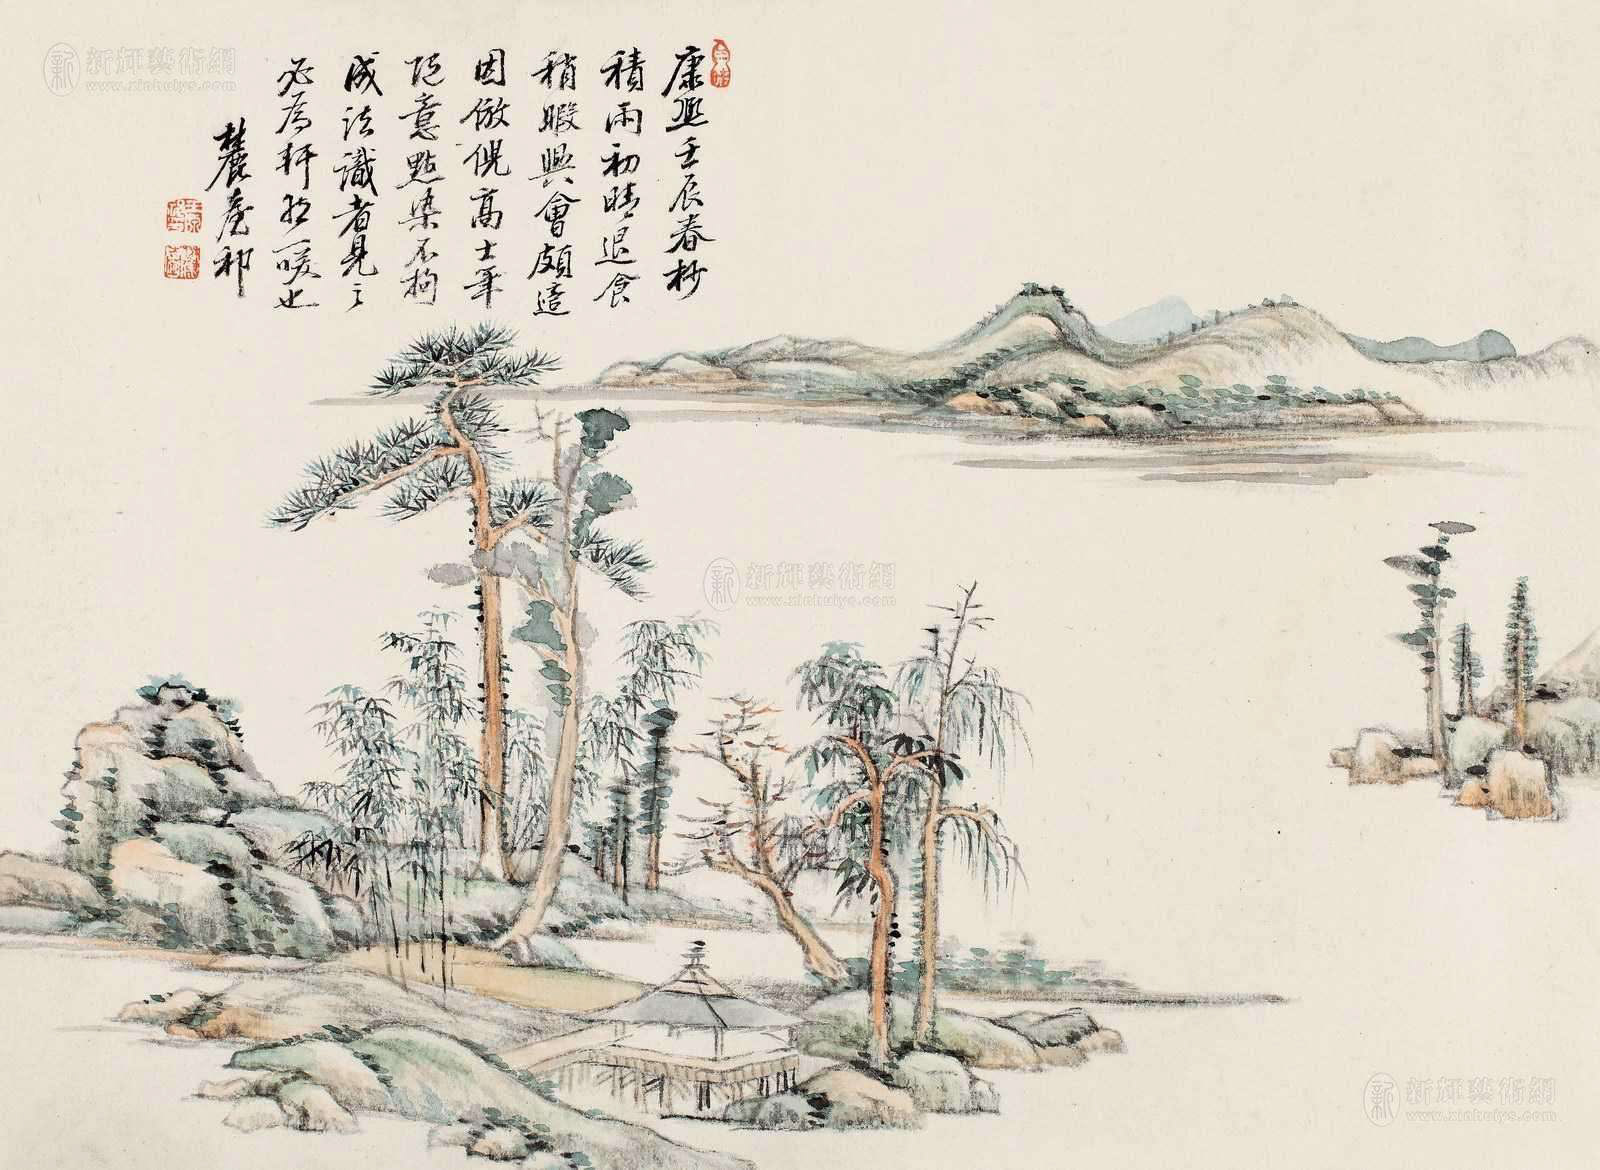 康熙壬辰春杪
積雨初晴退食
稍暇興會頗適
因倣倪高士筆
隨意點染不拘
成法識者見之
必為軒然一噱也
麓臺祁
新輝藝術網
www.xinhuiys.com
新輝藝術網
www.xinhuiys.com
新輝藝術網
www.xinhuiys.com